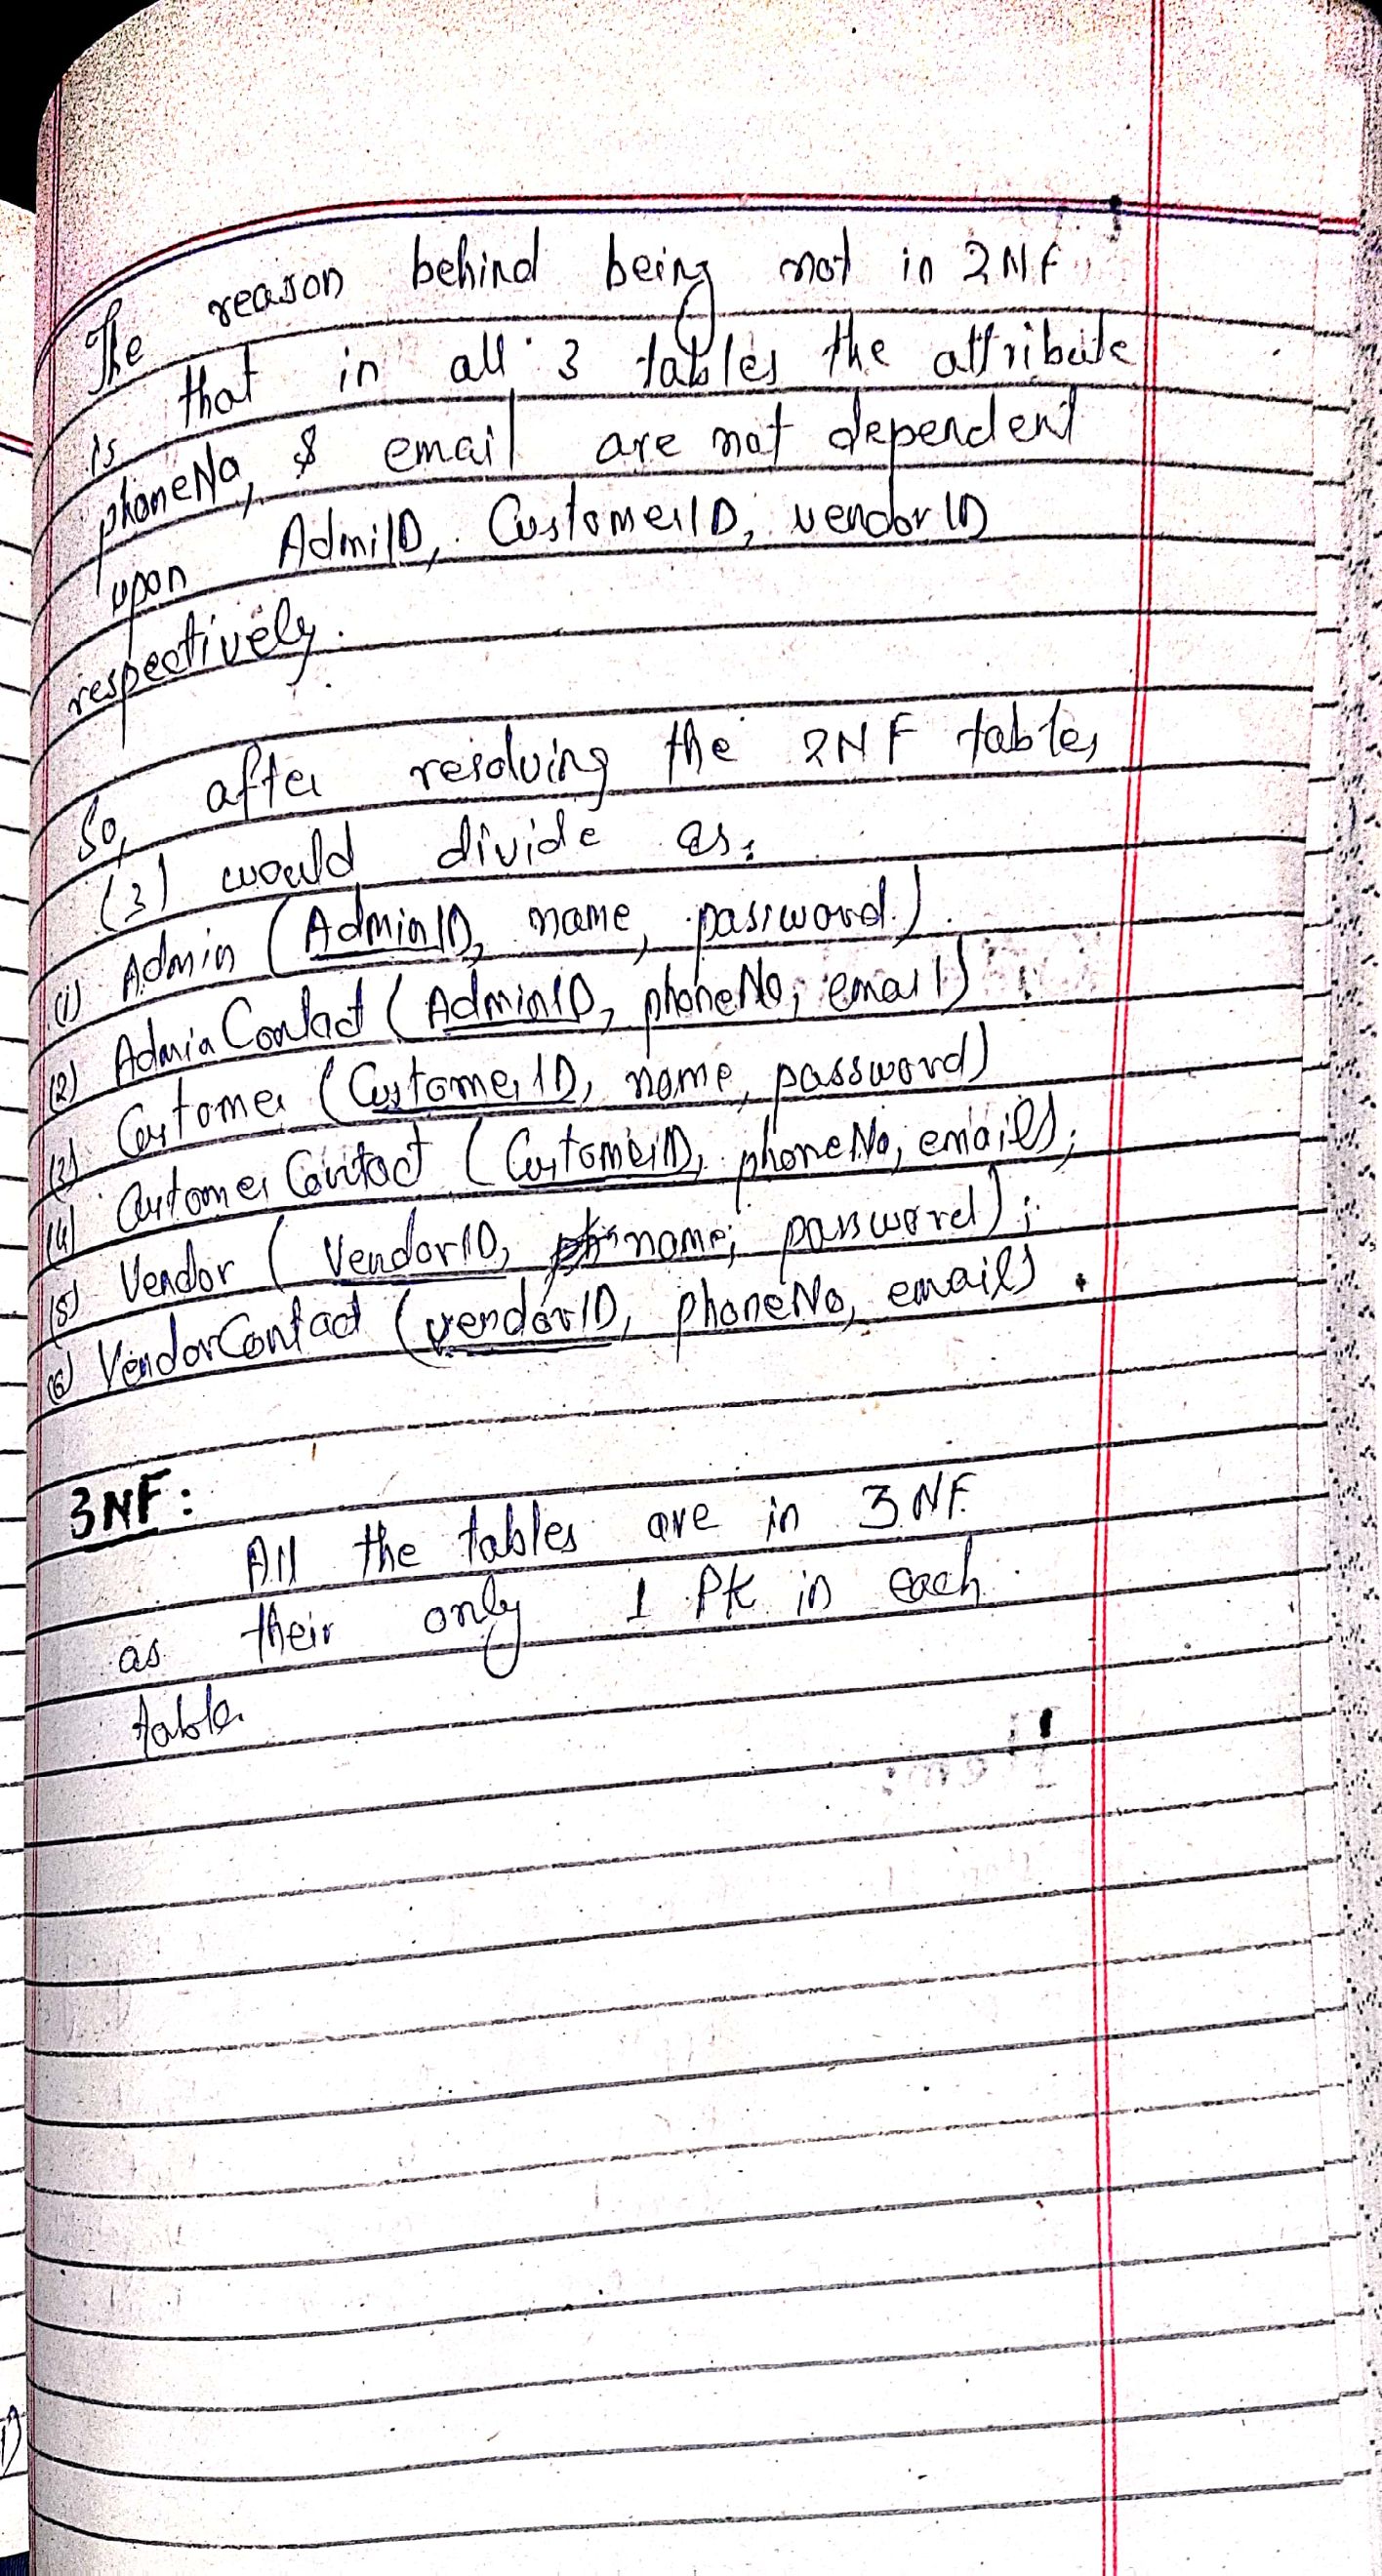 The reason behind being not in 2NF
is that in all 3 tables the attribute
phoneNo, & email are not dependent
upon AdmiID, CustomerID, vendorID
respectively.
So, after resolving the 2NF tables
(3) would divide as:
(1) Admin (AdminID, name, password).
(2) AdminContact (AdminID, phoneNo, email)
(3) Customer (CustomerID, name, password)
(4) Customer Contact (CustomerID, phoneNo, email);
(5) Vendor (VendorID, name, password);
(6) VendorContact (vendorID, phoneNo, email).
3NF:
All the tables are in 3NF
as their only 1 PK in each
table